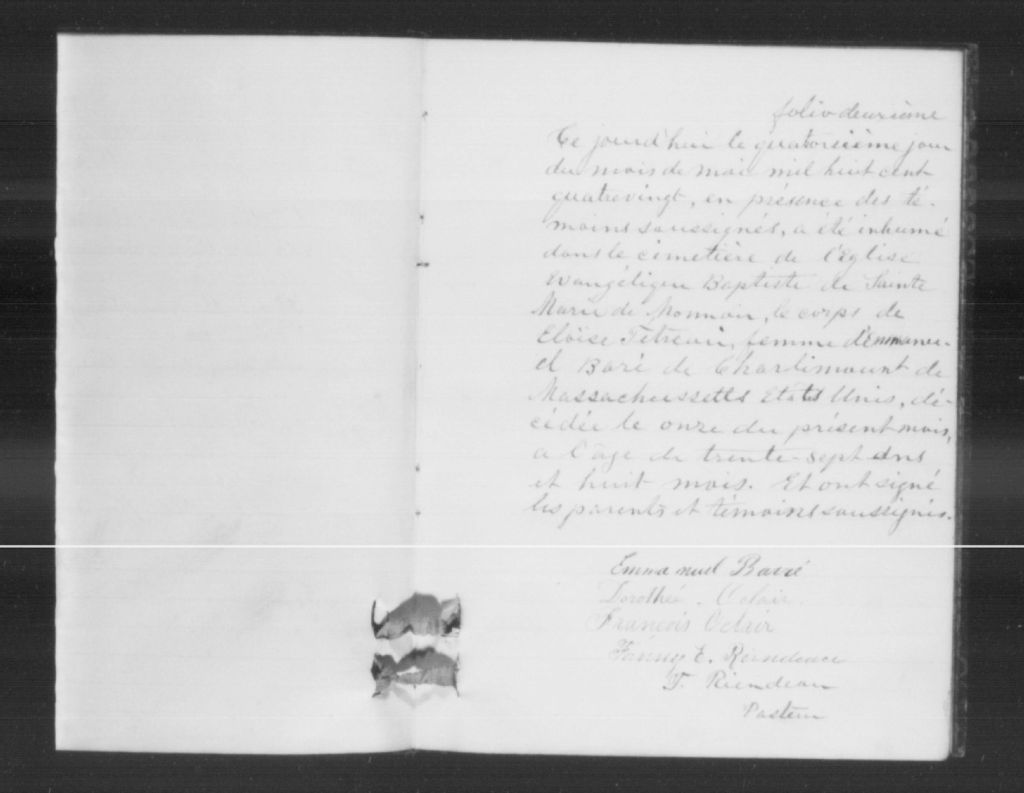 folio deuxième
Ce jourd'hui le quatorzième jour
du mois de mai mil huit cent
quatrevingt, en présence des té-
moins soussignés, a été inhumé
dans le cimetière de l'Eglise
Evangélique Baptiste de Sainte
Marie de Monnoir, le corps de
Eloïse Tetreau, femme d'Emmanu-
el Baré de Charlimount de
Massachussetts Etats Unis, dé-
cédée le onze du présent mois,
a l'âge de trente-sept ans
et huit mois. Et ont signé
les parents et témoins soussignés.
Emmanuel Barré
Dorothée
François
Fanny E. Riendeau
T. Riendeau
Pasteur